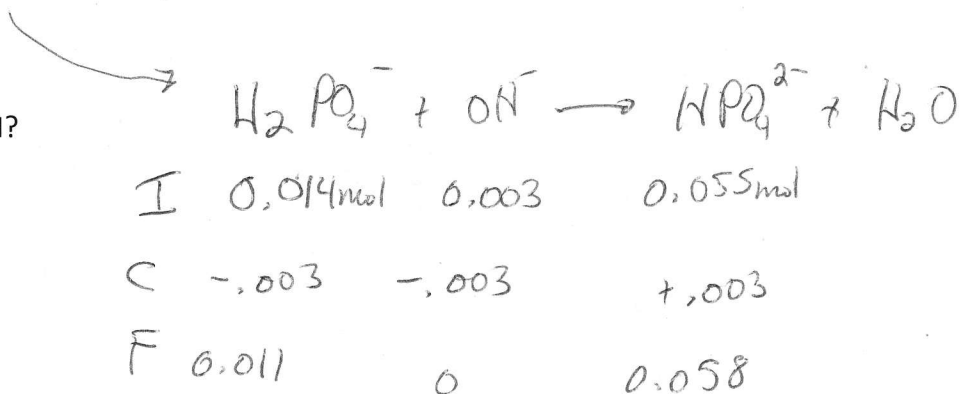 H₂PO₄⁻ + OH⁻ → HPO₄²⁻ + H₂O
?
I 0.014mol 0.003 0.055mol
C -.003 -.003 +.003
F 0.011 0 0.058